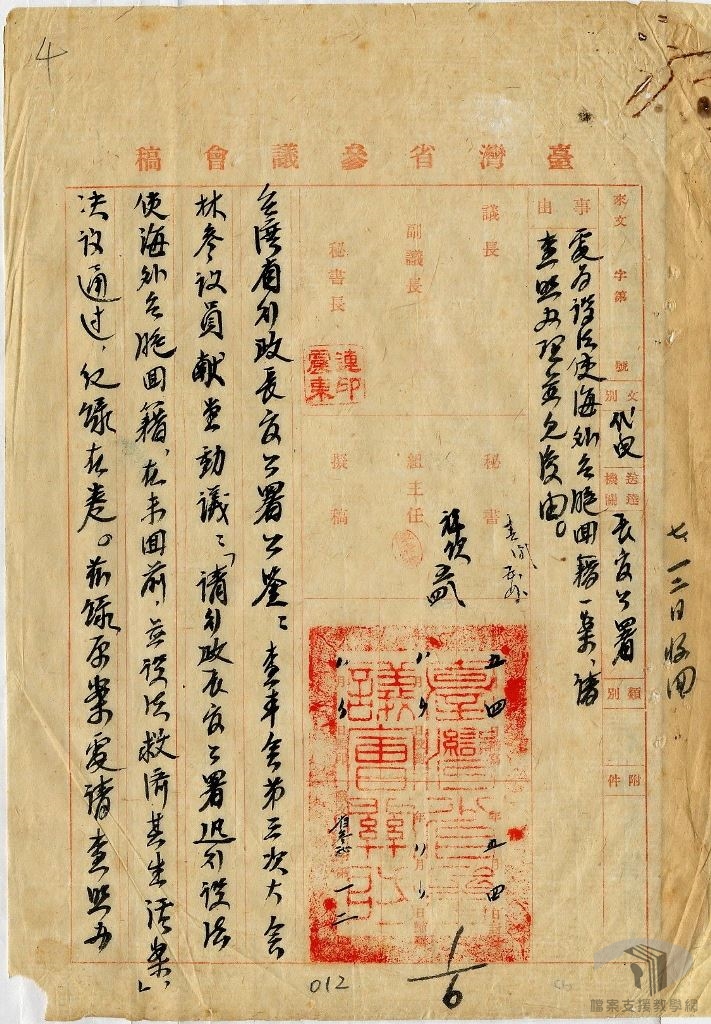 4
臺灣省參議會稿
來文 字第 號
文別 代電
送達機關 長官公署
類別
附件
事由
電為設法使海外台胞回籍一案，請
查照辦理並見復由。
議長
副議長
秘書長
連震東印
秘書
組主任
擬稿
七、一二日收回
台灣省行政長官公署公鑒：查本會第三次大會
林參議員獻堂動議：「請行政長官公署迅行設法
使海外台胞回籍，在未回前，並設法救濟其生活案」
決議通過，紀錄在卷。茲錄原案電請查照辦
1/6
012
檔案支援教學網